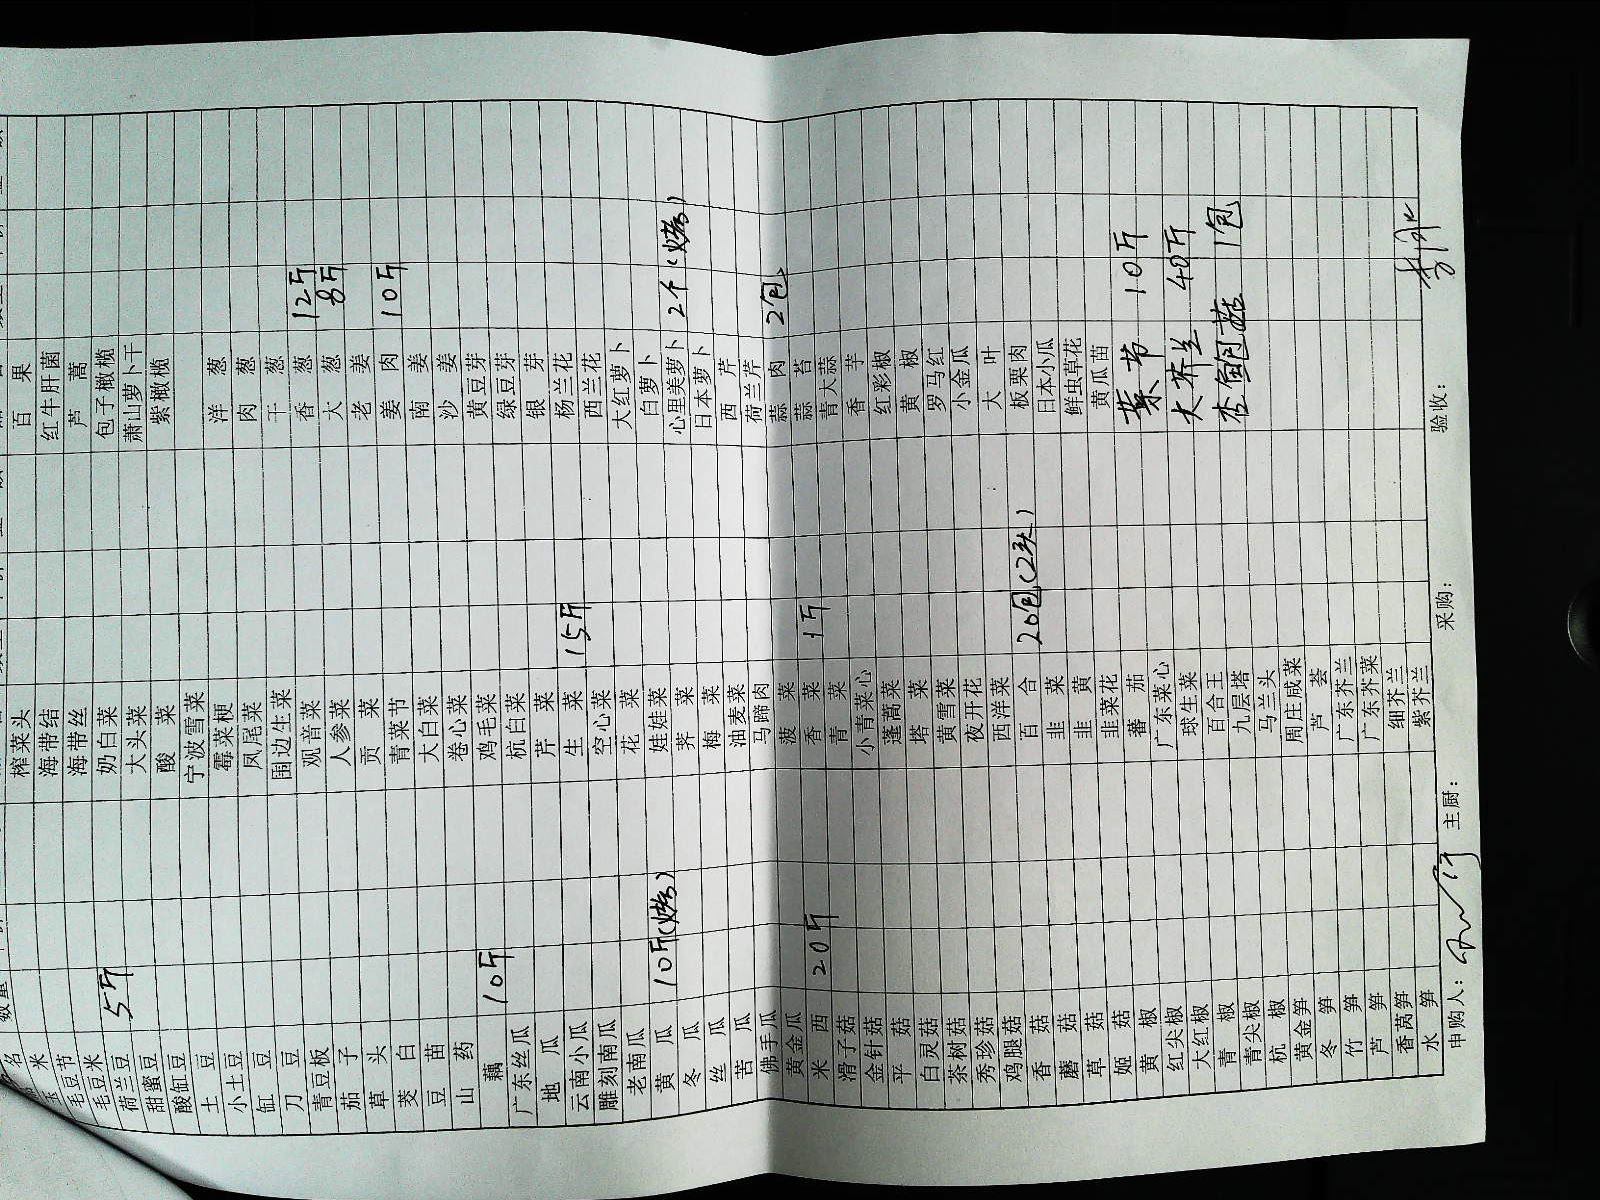 玉米 榨菜头 百果
毛豆节 海带结 红牛肝菌
毛豆米 海带丝 芦蒿
荷兰豆 5斤 奶白菜 包子橄榄
甜蜜豆 大头菜 萧山萝卜干
酸缸豆 酸菜 紫橄榄
土豆 宁波雪菜
小土豆 霉菜梗 洋葱
缸豆 凤尾菜 肉葱
刀豆 围边生菜 干葱
青豆板 观音菜 香葱 12斤
茄子 人参菜 大葱 8斤
草头 贡菜 老姜
茭白 青菜节 姜肉 10斤
豆苗 大白菜 南姜
山药 卷心菜 沙姜
藕 10斤 鸡毛菜 黄豆芽
广东丝瓜 杭白菜 绿豆芽
地瓜 芹菜 银芽
云南小瓜 生菜 15斤 杨兰花
雕刻南瓜 空心菜 西兰花
老南瓜 花菜 大红萝卜
黄瓜 10斤(烤) 娃娃菜 白萝卜
冬瓜 荠菜 心里美萝卜 2个(烤)
丝瓜 梅菜 日本萝卜
苦瓜 油麦菜 西芹
佛手瓜 马蹄肉 荷兰芹
黄金瓜 菠菜 蒜肉 2包
米西 20斤 香菜 1斤 蒜苔
滑子菇 青菜 青大蒜
金针菇 小青菜心 香芋
平菇 蓬蒿菜 红彩椒
白灵菇 塔菜 黄椒
茶树菇 黄雪菜 罗马红
秀珍菇 夜开花 小金瓜
鸡腿菇 西洋菜 大叶
香菇 百合 20包(2头) 板栗肉
蘑菇 韭菜 日本小瓜
草菇 韭黄 鲜虫草花
姬菇 韭菜花 黄瓜苗
黄椒 蕃茄 菜节 10斤
红尖椒 广东菜心
大红椒 球生菜 大芥兰 40斤
青椒 百合王
青尖椒 九层塔 杏鲍菇 1包
杭椒 马兰头
黄金笋 周庄咸菜
冬笋 芦荟
竹笋 广东芥兰
芦笋 广东芥菜
香莴笋 细芥兰
水笋 紫芥兰
申购人: 主厨: 采购: 验收: